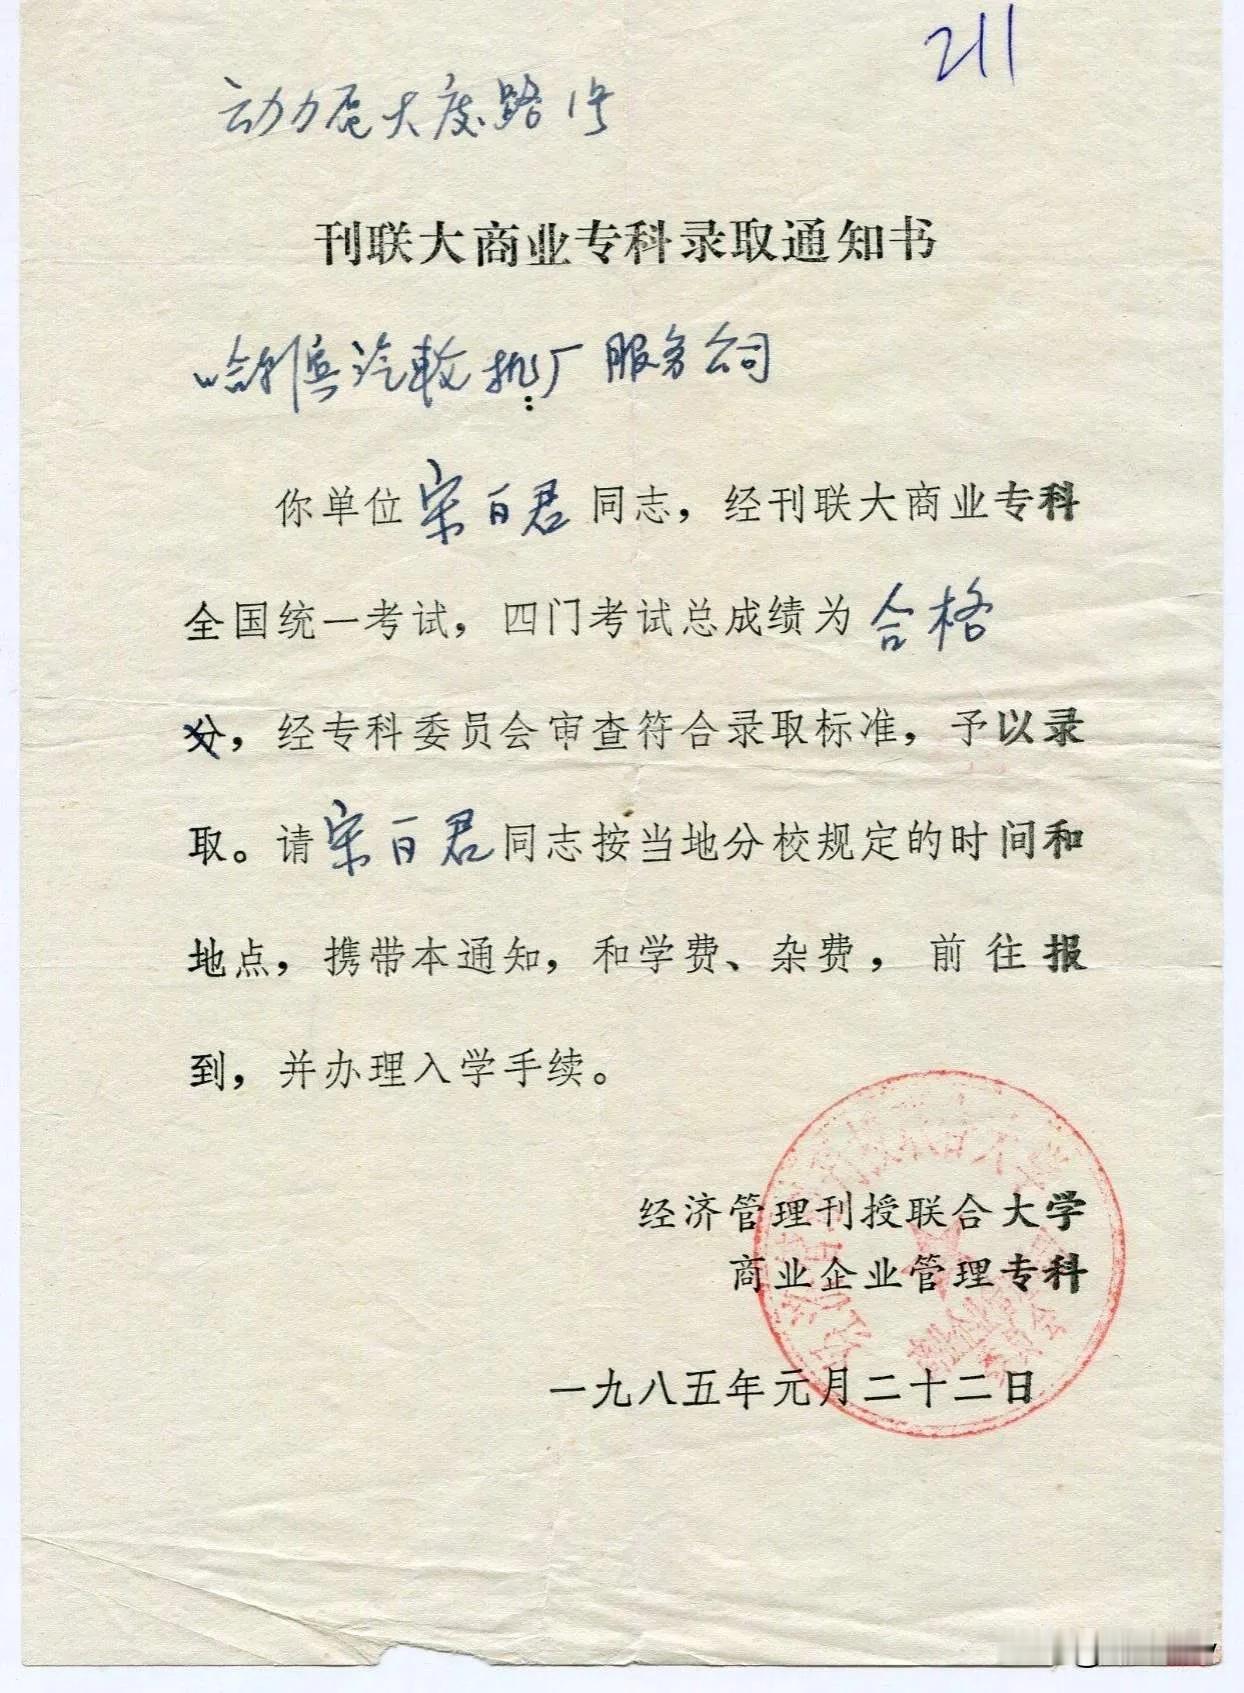 211
动力区大庆路1号
刊联大商业专科录取通知书
哈尔滨汽轮机厂服务公司
:
你单位宋百君同志，经刊联大商业专科
全国统一考试，四门考试总成绩为合格
分，经专科委员会审查符合录取标准，予以录
取。请宋百君同志按当地分校规定的时间和
地点，携带本通知，和学费、杂费，前往报
到，并办理入学手续。
经济管理刊授联合大学
商业企业管理专科
一九八五年元月二十二日
经济管理刊授联合大学
商业企业管理专科
委员会